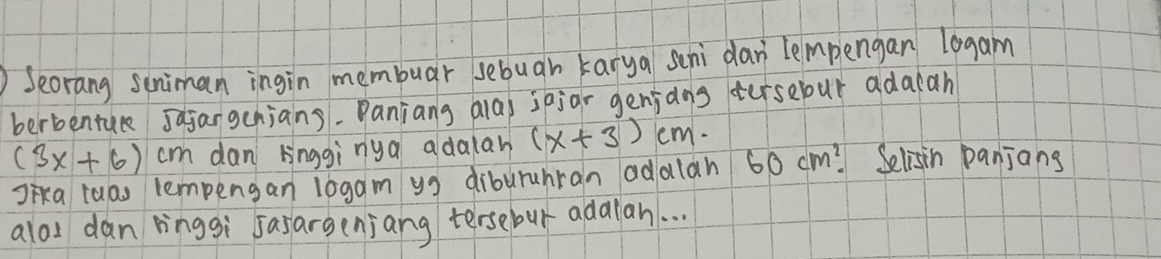 ) Seorang seniman ingin membuat sebuah karya seni dari lempengan logam
berbentuk jajargenjang. Panjang alas jajar genjang tersebut adalah
(3x + 6) cm dan tingginya adalah (x + 3) cm.
Jika luas lempengan logam yg dibutuhkan adalah 60 cm². Selisih panjang
alas dan tinggi jajargenjang tersebut adalah...